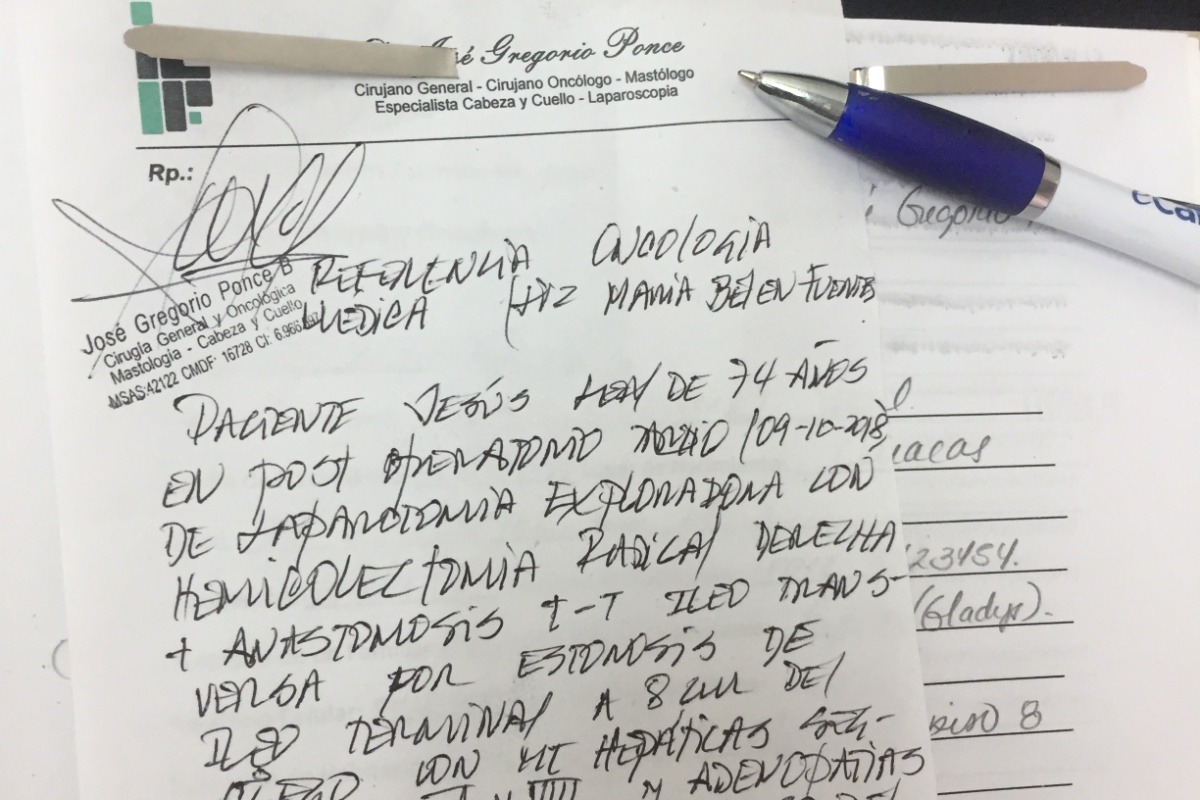 José Gregorio Ponce
Cirujano General - Cirujano Oncólogo - Mastólogo
Especialista Cabeza y Cuello - Laparoscopia
Rp.:
José Gregorio Ponce B
Cirugía General y Oncológica
Mastología - Cabeza y Cuello
MSAS:42122 CMDF: 16728 CI: 6.966.
REFERENCIA ONCOLOGIA
MEDICA MARIA BELEN FUENTES
PACIENTE JESÚS DE 74 AÑOS
EN POST OPERATORIO (09-10-2018)
DE LAPAROTOMIA EXPLORADORA CON
HEMICOLECTOMIA RADICAL DERECHA
+ ANASTOMOSIS T-T ILEO TRANS-
VERSA POR ESTENOSIS DE
ILEO TERMINAL A 8 CM DEL
CIEGO CON MT HEPÁTICAS SEG-
VIII Y ADENOPATIAS
Gregorio
acas
23454.
(Gladys).
piso 8